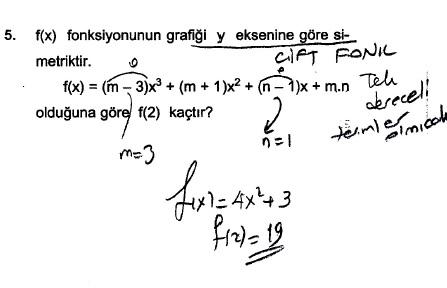 5. f(x) fonksiyonunun grafiği y eksenine göre si-
metriktir.
ÇİFT FONK
0 0
f(x) = (m – 3)x³ + (m + 1)x² + (n – 1)x + m.n
Tek
dereceli
terimler
olmıcak
olduğuna göre f(2) kaçtır?
m=3
n=1
f(x)=4x²+3
f(2)=19